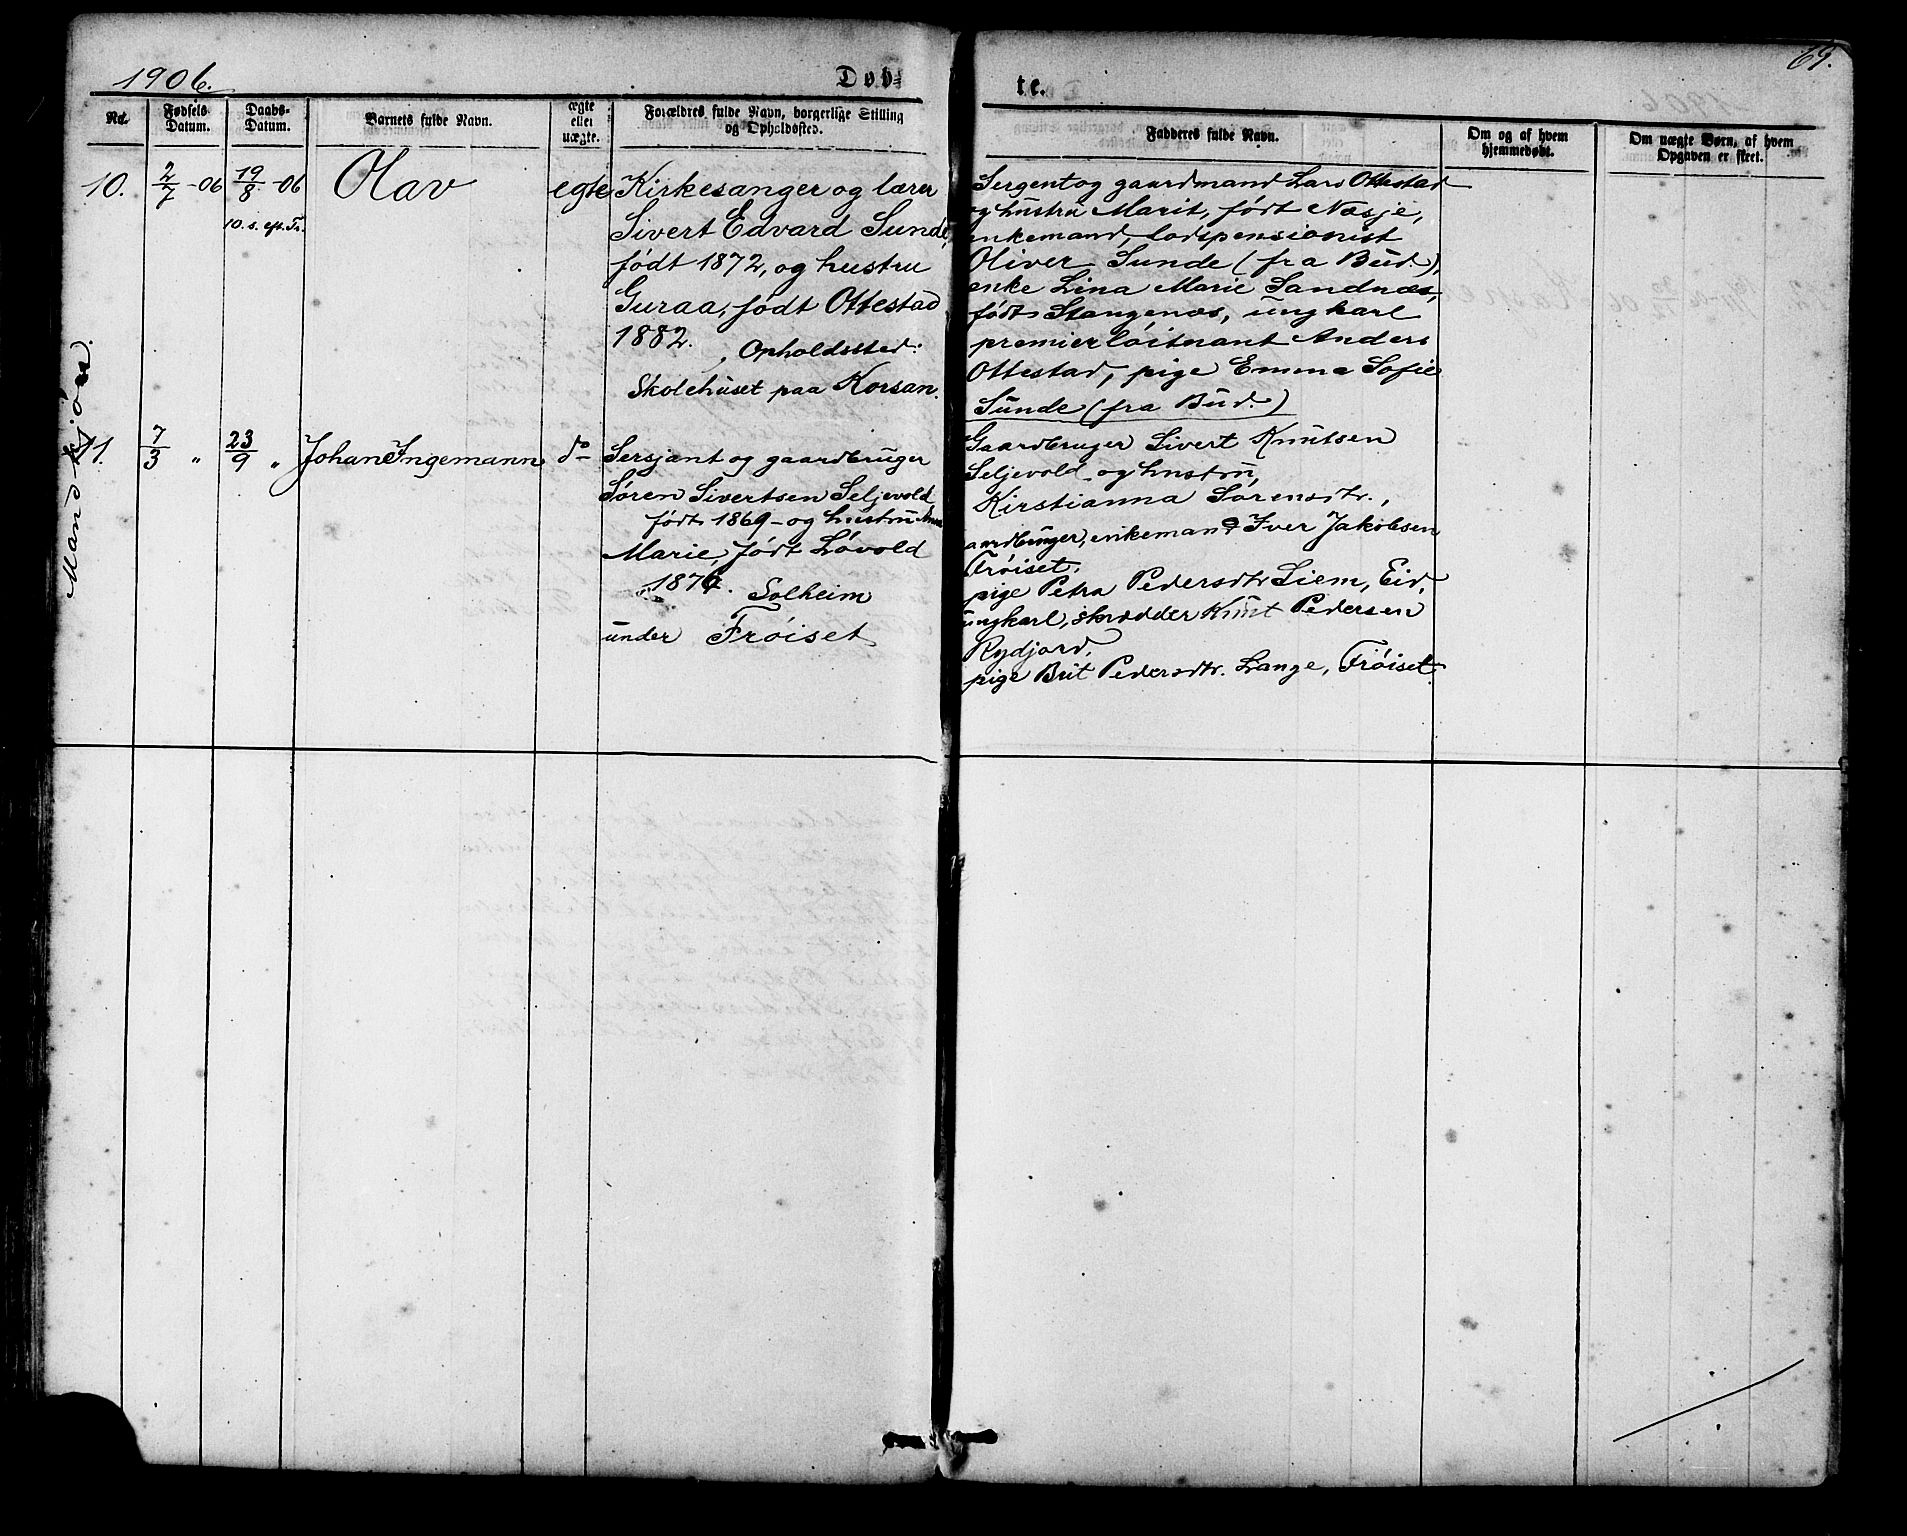 1906.
Døb-
te.
69.
No.
Fødsels-
Datum.
Daabs-
Datum.
Barnets fulde Navn.
ægte
eller
uægte.
Forældres fulde Navn, borgerlige Stilling
og Opholdssted.
Fadderes fulde Navn.
Om og af hvem
hjemmedøbt.
Om uægte Børn, af hvem
Opgaven er skeet.
Mandkjøn.
10.
2/7 -06
19/8 -06
10. s. eft. Tr.
Olav
egte
Kirkesanger og lærer
Sivert Edvard Sunde,
født 1872, og hustru
Guraa, født Ottestad
1882.
Opholdssted:
Skolehuset paa Korsan.
Sergent og gaardmand Lars Ottestad
og hustru Marit, født Næsje,
enkemand, lodspensionist
Oliver Sunde (fra Bud.),
enke Lina Marie Sandnæs,
født Stangenæs, ungkarl
premierløitnant Anders
Ottestad, pige Emma Sofie
Sunde (fra Bud.)
11.
7/3 "
23/9 "
Johan Ingemann
do
Sersjant og gaardbruger
Søren Sivertsen Seljevold
født 1869 - og hustru Anna
Marie, født Løvold
1876. Solheim
under Frøiset
Gaardbruger Sivert Knutsen
Seljevold og hustru,
Kirstianna Sørensdtr.,
aardbruger, enkemand Iver Jakobsen
Frøiset,
pige Petra Pedersdtr Liem, Eid,
ungkarl, skrædder Knut Pedersen
Rydjord,
pige Brit Pedersdtr. Lange, Frøiset.